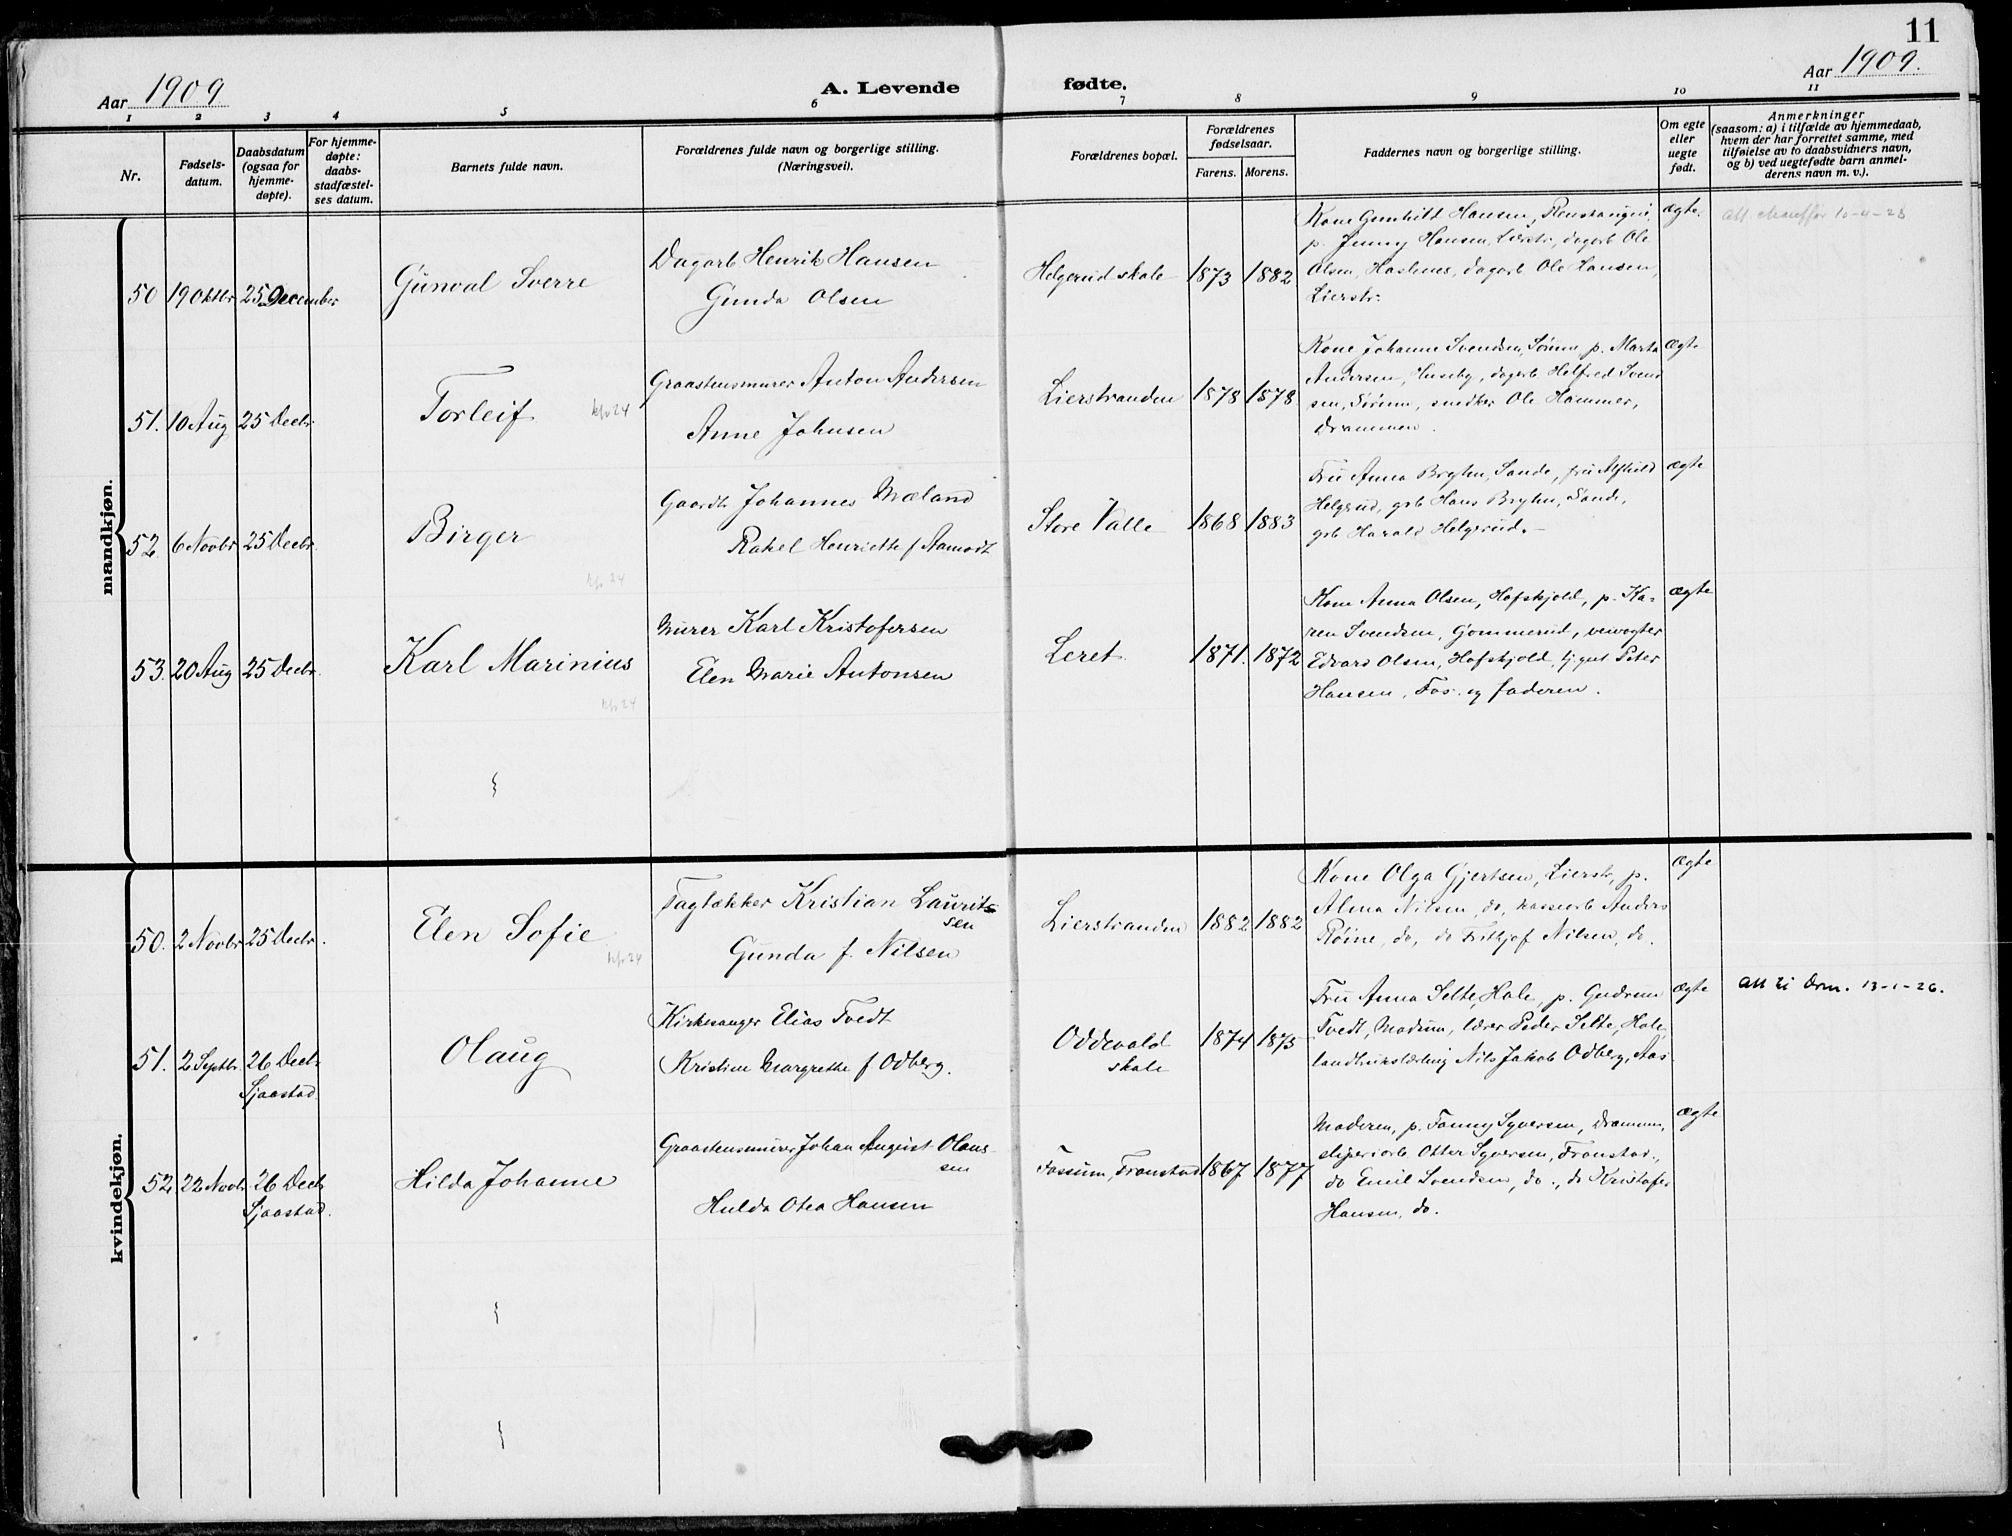 11
Aar 1909
A. Levende fødte.
Aar 1909.
1 2 3 4 5 6 7 8 9 10 11
Nr.
Fødsels-
datum.
Daabsdatum
(ogsaa for
hjemme-
døpte).
For hjemme-
døpte:
daabs-
stadfæstel-
ses datum.
Barnets fulde navn.
Forældrenes fulde navn og borgerlige stilling.
(Næringsvei).
Forældrenes bopæl.
Forældrenes
fødselsaar.
Farens. Morens.
Faddernes navn og borgerlige stilling.
Om egte
eller
uegte
født.
Anmerkninger
(saasom: a) i tilfælde av hjemmedaab,
hvem der har forrettet samme, med
tilføielse av to daabsvidners navn,
og b) ved uegtefødte barn anmel-
derens navn m. v.).
mandkjøn.
50 19 Oktbr 25 December
Gunval Sverre
Dagarb Henrik Hansen
Gunda Olsen
Helgerud skole 1873 1882
Kone Gunhild Hansen,
p. Jenny Hansen, Lierstr, dagarb Ole
Olsen, Haslenes, dagarb Ole Hansen,
Lierstr.
ægte.
Att. chauffør 10-4-28
51. 10 Aug 25 Decbr
Torleif
kfr 24
Graastensmurer Anton Andersen
Anne Johnsen
Lierstranden 1878 1878
Kone Johanne Svendsen, Sørum, p. Marta
Andersen, Huseby, dagarb Helfred Svend
sen, Sørum, snedker Ole Hammer,
Drammen.
ægte
52. 6 Novbr 25 Decbr.
Birger
kfr 24
Gaardbr Johannes Mæland
Rakel Henriette f Aamodt
Store Valle 1868 1883
Fru Anna Bryhn, Sande, fru Alfhild
Helgerud, grb Hans Bryhn, Sande,
grb Harald Helgerud.
ægte
53. 20 Aug 25 Decbr.
Karl Marinius
kfr 24
Murer Karl Kristofersen
Elen Marie Antonsen
Leret 1871. 1872
Kone Anna Olsen, Hofskjold, p. Ka-
ren Svendsen, Gommerud, veivogter
Edvard Olsen, Hofskjold, tj.gut Peter
Hansen, Fos. og faderen.
ægte
kvindekjøn.
50. 2 Novbr 25 Decbr.
Elen Sofie
kfr 24
Tagtækker Kristian Laurit-
sen
Gunda f. Nilsen
Lierstranden 1882 1882
Kone Olga Gjertsen, Lierstr, p.
Alma Nilsen, do, kassearb Anders
Røine, do, do Fritjof Nilsen, do.
ægte
51. 2 Septbr. 26 Decbr
Sjaastad.
Olaug
Kirkesanger Elias Tvedt
Kristine Margrethe f Odberg.
Oddevald
skole
1874 1875
Fru Anna Selte, Hole, p. Gudrun
Tvedt, Modum, lærer Peder Selte, Hole,
landbrukslærling Nils Jakob Odberg, Aas
ægte
Att til Drm. 13-1-26.
52. 22 Novbr. 26 Decbr
Sjaastad.
Hilda Johanne
Graastensmurer Johan August Olaus-
sen
Hulda Otea Hansen
Fossum, Transtad 1867 1877
Moderen, p. Fanny Syversen, Drammen,
sliperiarb Otter Syversen, Transtad.,
do Emil Svendsen, do., do Kristofer
Hansen, do.
ægte